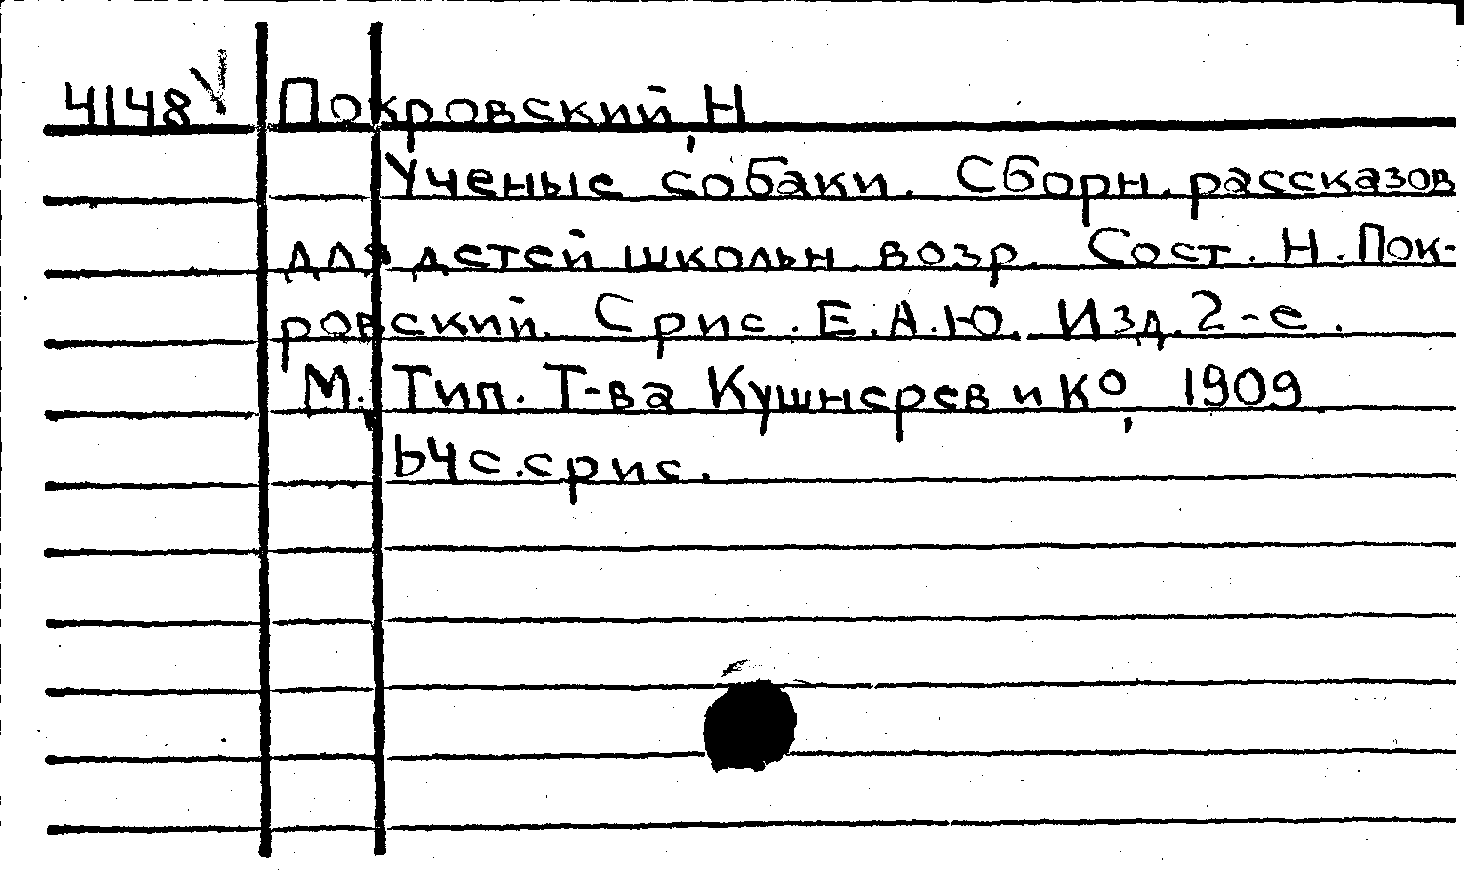 4148 Покровский, Н
Ученые собаки. Сборн. рассказов
для детей школьн возр. Сост. Н. Пок-
ровский. С рис. Е.А.Ю. Изд. 2-е.
М., Тип. Т-ва Кушнерев и Ко, 1909
64 с. с рис.